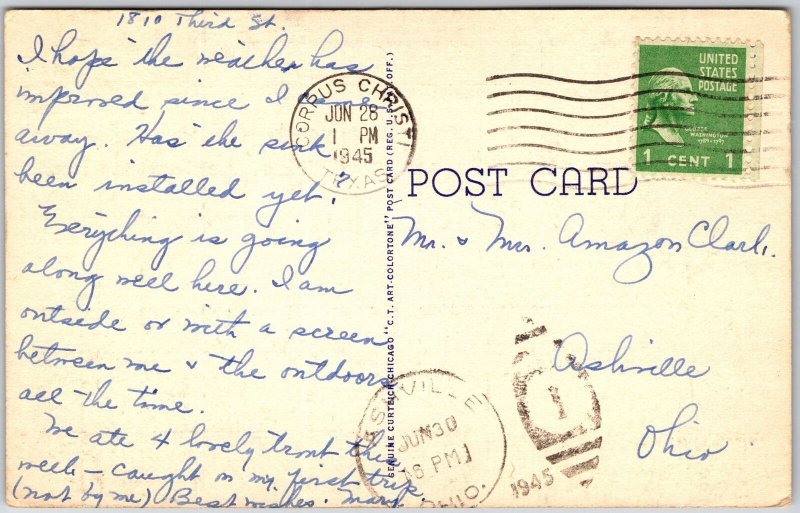 1810 Third St.
I hope the weather has
improved since I came
away. Has the sink
been installed yet?
Everything is going
along well here. I am
outside or with a screen
between me & the outdoors
all the time.
We ate 4 lovely trout this
week — caught on my first trip.
(not by me) Best wishes. Mary
CORPUS CHRISTI
JUN 28
1 PM
1945
TEXAS
GENUINE CURTEICH-CHICAGO "C.T. ART-COLORTONE" POST CARD (REG. U.S. PAT. OFF.)
UNITED
STATES
POSTAGE
GEORGE
WASHINGTON
1789-1797
1 CENT 1
POST CARD
Mr. & Mrs. Amazon Clark.
Ashville
Ohio
ASHVILLE
JUN 30
6 PM
OHIO.
1
1945